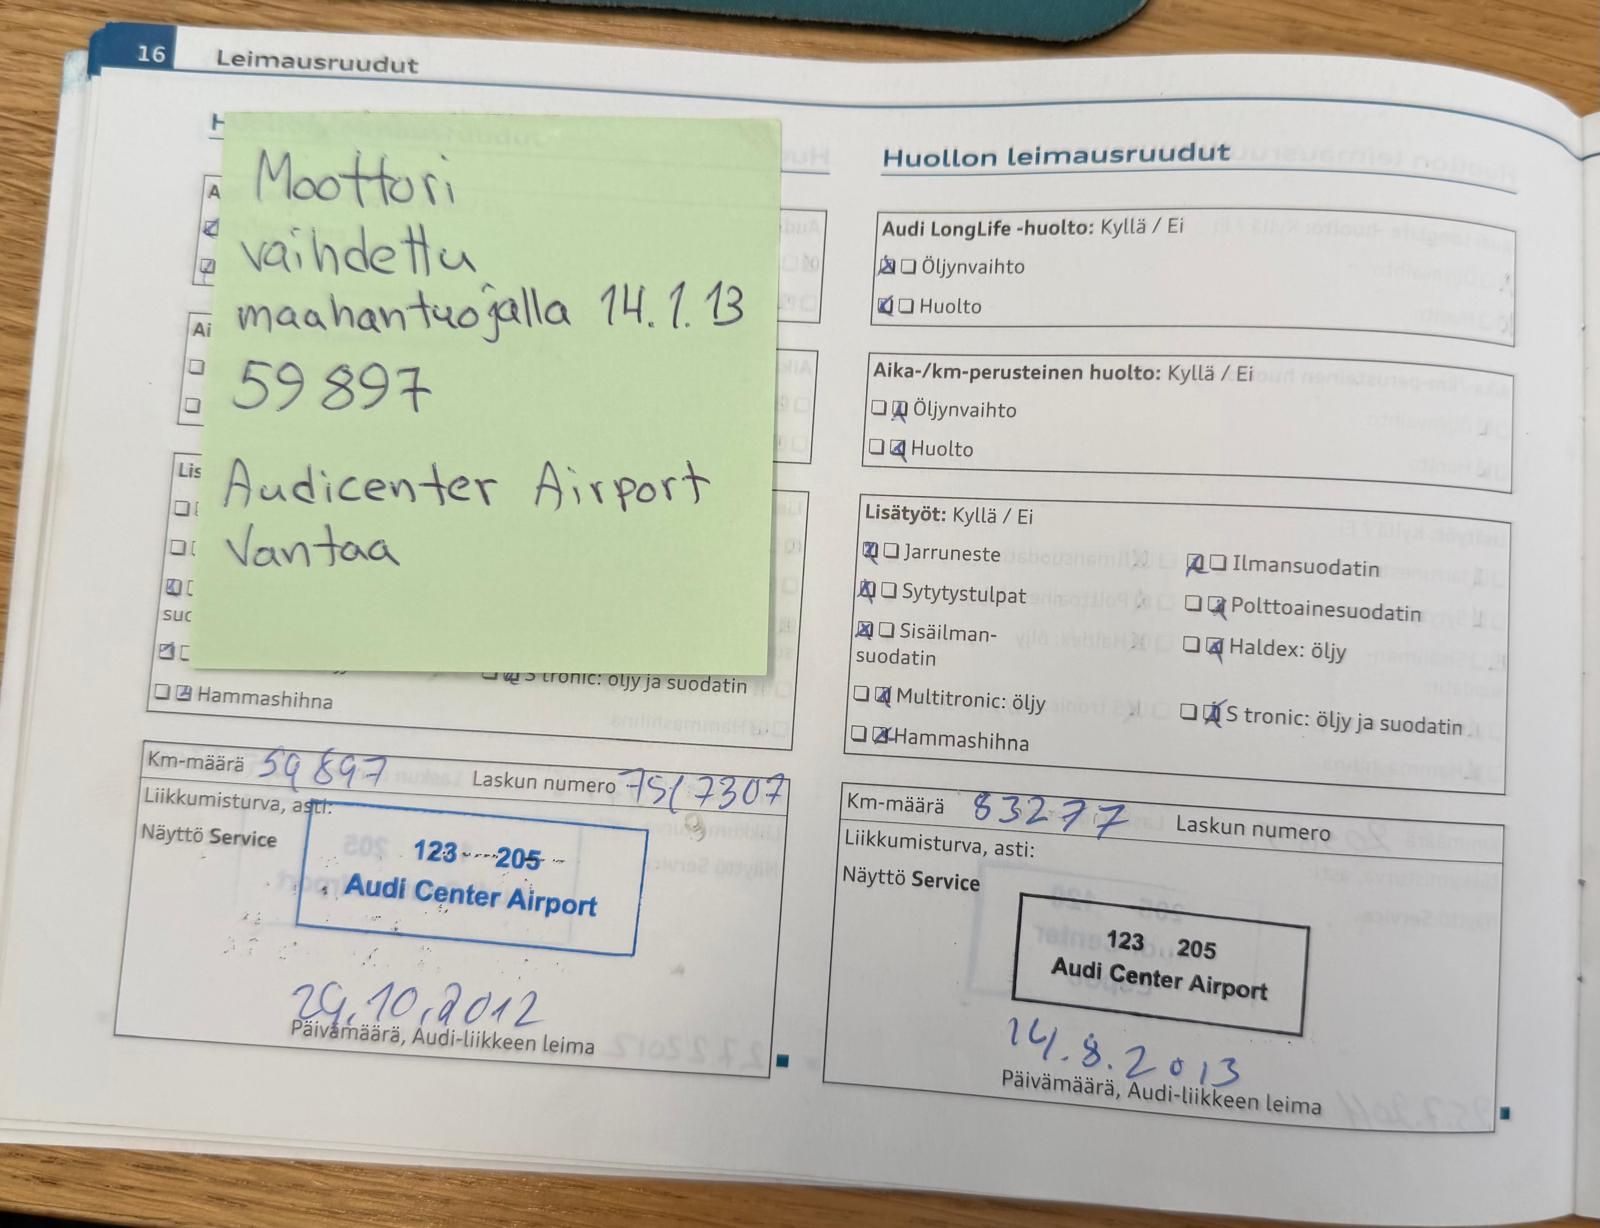 16 Leimausruudut
Moottori
vaihdettu
maahantuojalla 14.1.13
59 897
Audicenter Airport
Vantaa
A
Ai
Lis
suo
S tronic: öljy ja suodatin
Hammashihna
Km-määrä 59 897 Laskun numero
Liikkumisturva, asti:
Näyttö Service
123 205
Audi Center Airport
29.10.2012
Päivämäärä, Audi-liikkeen leima
Huollon leimausruudut
Audi LongLife -huolto: Kyllä / Ei
Öljynvaihto
Huolto
Aika-/km-perusteinen huolto: Kyllä / Ei
Öljynvaihto
Huolto
Lisätyöt: Kyllä / Ei
Jarruneste
Sytytystulpat
Sisäilman-
suodatin
Multitronic: öljy
Hammashihna
Ilmansuodatin
Polttoainesuodatin
Haldex: öljy
S tronic: öljy ja suodatin
Km-määrä 83277 Laskun numero
Liikkumisturva, asti:
Näyttö Service
123 205
Audi Center Airport
14.8.2013
Päivämäärä, Audi-liikkeen leima